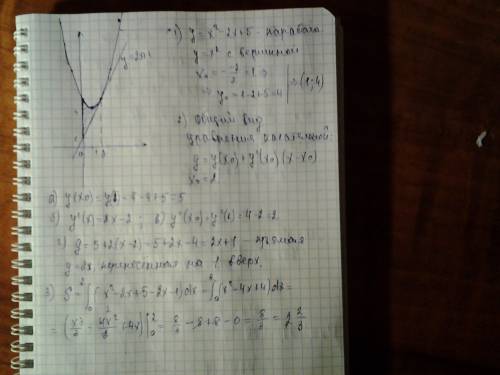 1) y = x² - 2x + 5 - парабола
y = x² с вершиной
y = 2x+1
x₀ = -(-2)/2 = 1 ⇒
⇒ y₀ = 1-2+5 = 4 ⇒ (1; 4)
2) Общий вид
уравнения касательной:
y = y(x₀) + y'(x₀)(x - x₀)
x₀ = 2
а) y(x₀) = y(2) = 4 - 4 + 5 = 5
б) y'(x) = 2x - 2 ; в) y'(x₀) = y'(2) = 4 - 2 = 2
y = 5 + 2(x - 2) = 5 + 2x - 4 = 2x + 1 - прямая
y = 2x, на 1 вверх.
3) S = ∫₀² (x² - 2x + 5 - 2x - 1) dx = ∫₀² (x² - 4x + 4) dx =
= (x³/3 - 4x²/2 + 4x) |₀² = 8/3 - 8 + 8 - 0 = 8/3 = 2 2/3